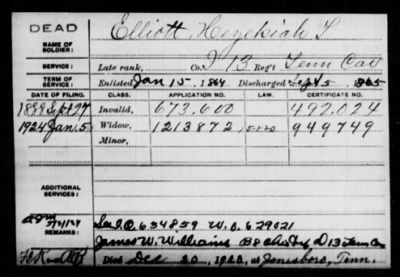 DEAD
NAME OF SOLDIER: Elliott, Hezekiah T
SERVICE: Late rank, Co. I 13 Reg't Tenn Cav
TERM OF SERVICE: Enlisted Jan 15, 1864 Discharged Sept 5 1865
DATE OF FILING. CLASS. APPLICATION NO. LAW. CERTIFICATE NO.
1889 Sept 27 Invalid, 673,600 492,024
1924 Jan. 5 Widow, 1213872 949749
Minor,
ADDITIONAL SERVICES:
REMARKS: I.O. 634859 W.O. 629021
James W. Williams D 13 Tenn Cav
Died Dec 20, 1923, at Jonesboro, Tenn.